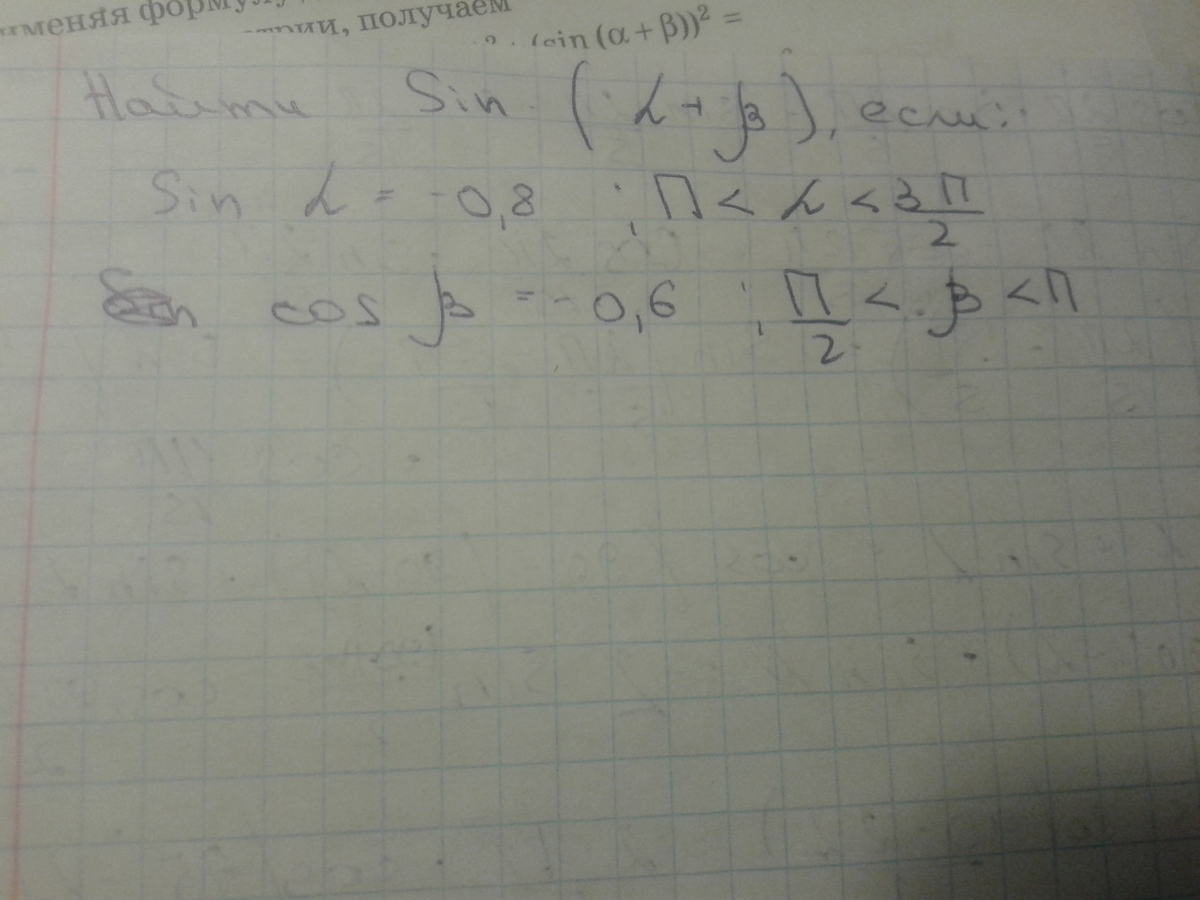 именяя формулу
трии, получаем
(sin (α + β))² =
Найти Sin (α + β), если:
Sin α = -0,8 ; П < α < 3П/2
cos β = -0,6 ; П/2 < β < П